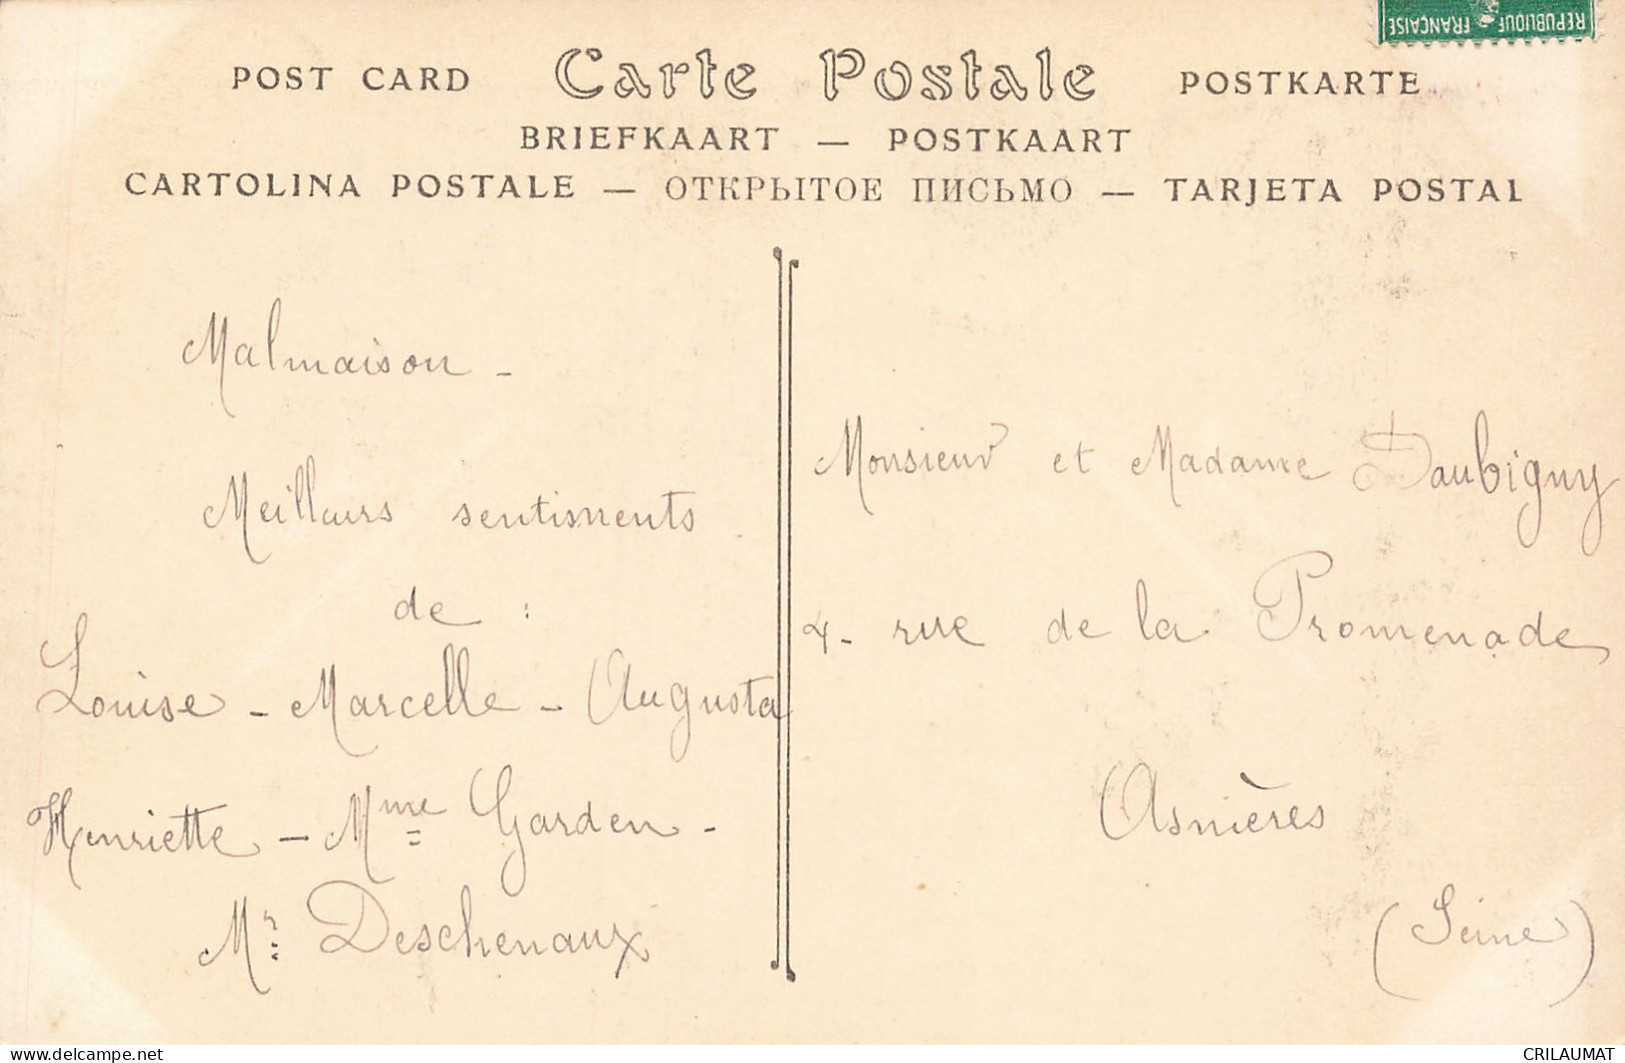 REPUBLIQUE FRANÇAISE
POST CARD Carte Postale POSTKARTE
BRIEFKAART — POSTKAART
CARTOLINA POSTALE — ОТКРЫТОЕ ПИСЬМО — TARJETA POSTAL
Malmaison -
Meilleurs sentiments
de :
Louise - Marcelle - Augusta
Henriette - Mme Garden -
Mr Deschenaux
Monsieur et Madame Daubigny
4 - rue de la Promenade
Asnières
(Seine)
www.delcampe.net
CRILAUMAT